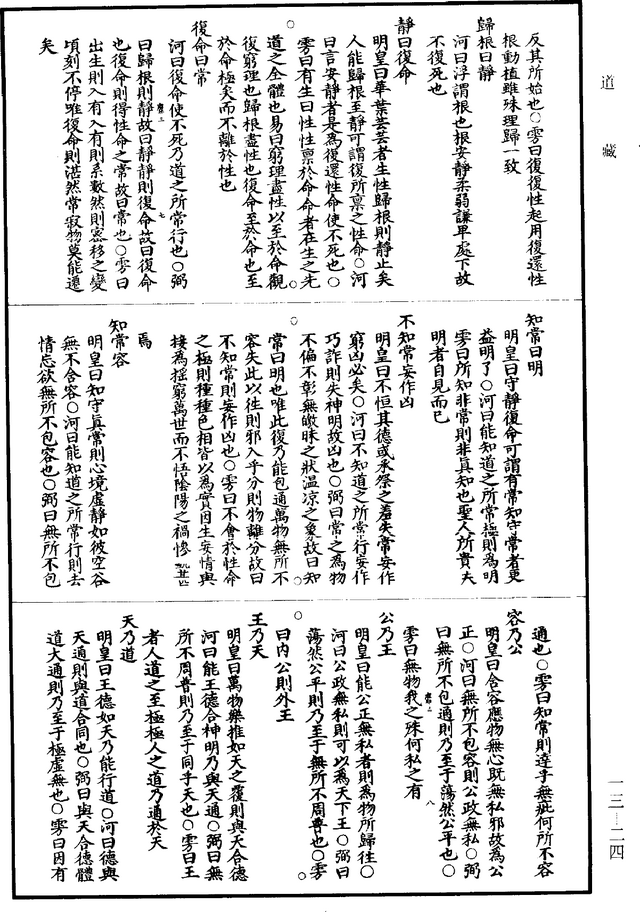 道藏
反其所始也○雱曰復復性起用復還性
根動植雖殊理歸一致
歸根曰靜
河曰浮謂根也根安靜柔弱謙卑處下故
不復死也
靜曰復命
明皇曰華葉芸芸者生性歸根則靜止矣
人能歸根至靜可謂復所稟之性命○河
曰言安靜者是為復還性命使不死也○
雱曰有生曰性性稟於命命者在生之先
道之全體也易曰窮理盡性以至於命觀
復窮理也歸根盡性也復命至於命也至
於命極矣而不離於性也
復命曰常
河曰復命使不死乃道之所常行也○弼
曰歸根則靜故曰靜靜則復命故曰復命
也復命則得性命之常故曰常也○雱曰
出生則入有入有則系數然則密移之變
頃刻不停唯復命則湛然常寂物莫能遷
矣
知常曰明
明皇曰守靜復命可謂有常知守常者更
益明了○河曰能知道之所常行則為明
雱曰所知非常則非真知也聖人所貴夫
明者自見而已
不知常妄作凶
明皇曰不恒其德或承祭之羞失常妄作
窮凶必矣○河曰不知道之所常行妄作
巧詐則失神明故凶也○弼曰常之為物
不偏不彰無皦昧之狀溫凉之象故曰知
常曰明也唯此復乃能包通萬物無所不
容失此以往則邪入乎分則物離分故曰
不知常則妄作凶也○雱曰不會於性命
之極則種種色相皆以為實因生妄情與
接為搖窮萬世而不悟陰陽之禍慘
焉
知常容
明皇曰知守真常則心境虛靜如彼空谷
無不含容○河曰能知道之所常行則去
情忘欲無所不包容也○弼曰無所不包
通也○雱曰知常則達乎無疵何所不容
容乃公
明皇曰含容應物無心既無私邪故為公
正○河曰無所不包容則公政無私○弼
曰無所不包通則乃至于蕩然公平也○
雱曰無物我之殊何私之有
公乃王
明皇曰能公正無私者則為物所歸往○
河曰公政無私則可以為天下王○弼曰
蕩然公平則乃至于無所不周普也○雱
曰內公則外王
王乃天
明皇曰萬物樂推如天之覆則與天合德
河曰能王德合神明乃與天通○弼曰無
所不周普則乃至于同乎天也○雱曰王
者人道之至極極人之道乃通於天
天乃道
明皇曰王德如天乃能行道○河曰德與
天通則與道合同也○弼曰與天合德體
道大通則乃至于極虛無也○雱曰因有
一三—二四